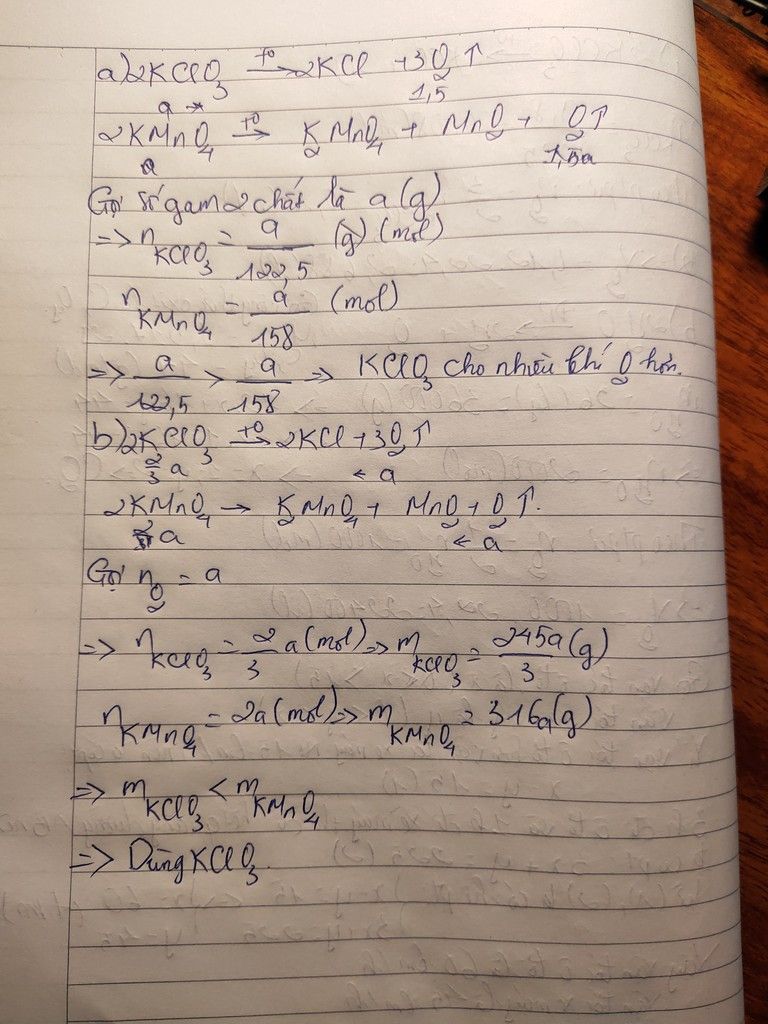 a) 2KClO₃ →t⁰ 2KCl + 3O₂↑
a → 1,5
2KMnO₄ →t⁰ K₂MnO₄ + MnO₂ + O₂↑
a 1,5a
Gọi số gam 2 chất là a (g)
=> n KClO₃ = a/122,5 (g) (mol)
n KMnO₄ = a/158 (mol)
=> a/122,5 > a/158 => KClO₃ cho nhiều khí O₂ hơn.
b) 2KClO₃ →t⁰ 2KCl + 3O₂↑
2/3 a ← a
2KMnO₄ → K₂MnO₄ + MnO₂ + O₂↑.
2a ← a
Gọi n O₂ = a
=> n KClO₃ = 2/3 a (mol) => m KClO₃ = 245a/3 (g)
n KMnO₄ = 2a (mol) => m KMnO₄ = 316a (g)
=> m KClO₃ < m KMnO₄
=> Dùng KClO₃.